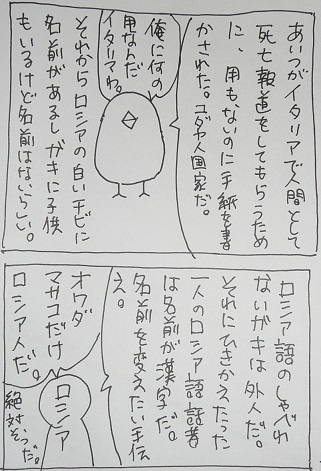 あいつがイタリアで人間として
死亡報道をしてもらうため
に、用もないのに手紙を書
かされた。ユダヤ人画家だ。
俺に何の
用なんだ
イタリアわ。
それからロシアの白いチビに
名前があるしガキに子供
もいるけど名前はないらしい。
ロシア語のしゃべれ
ないガキは外人だ。
それにひきかえたった
一人のロシア語話者
は名前が漢字だ。
名前を変えたい手伝
え。
オワダ
マサコだけ
ロシア人だ。
ロシア
絶対そうだ。